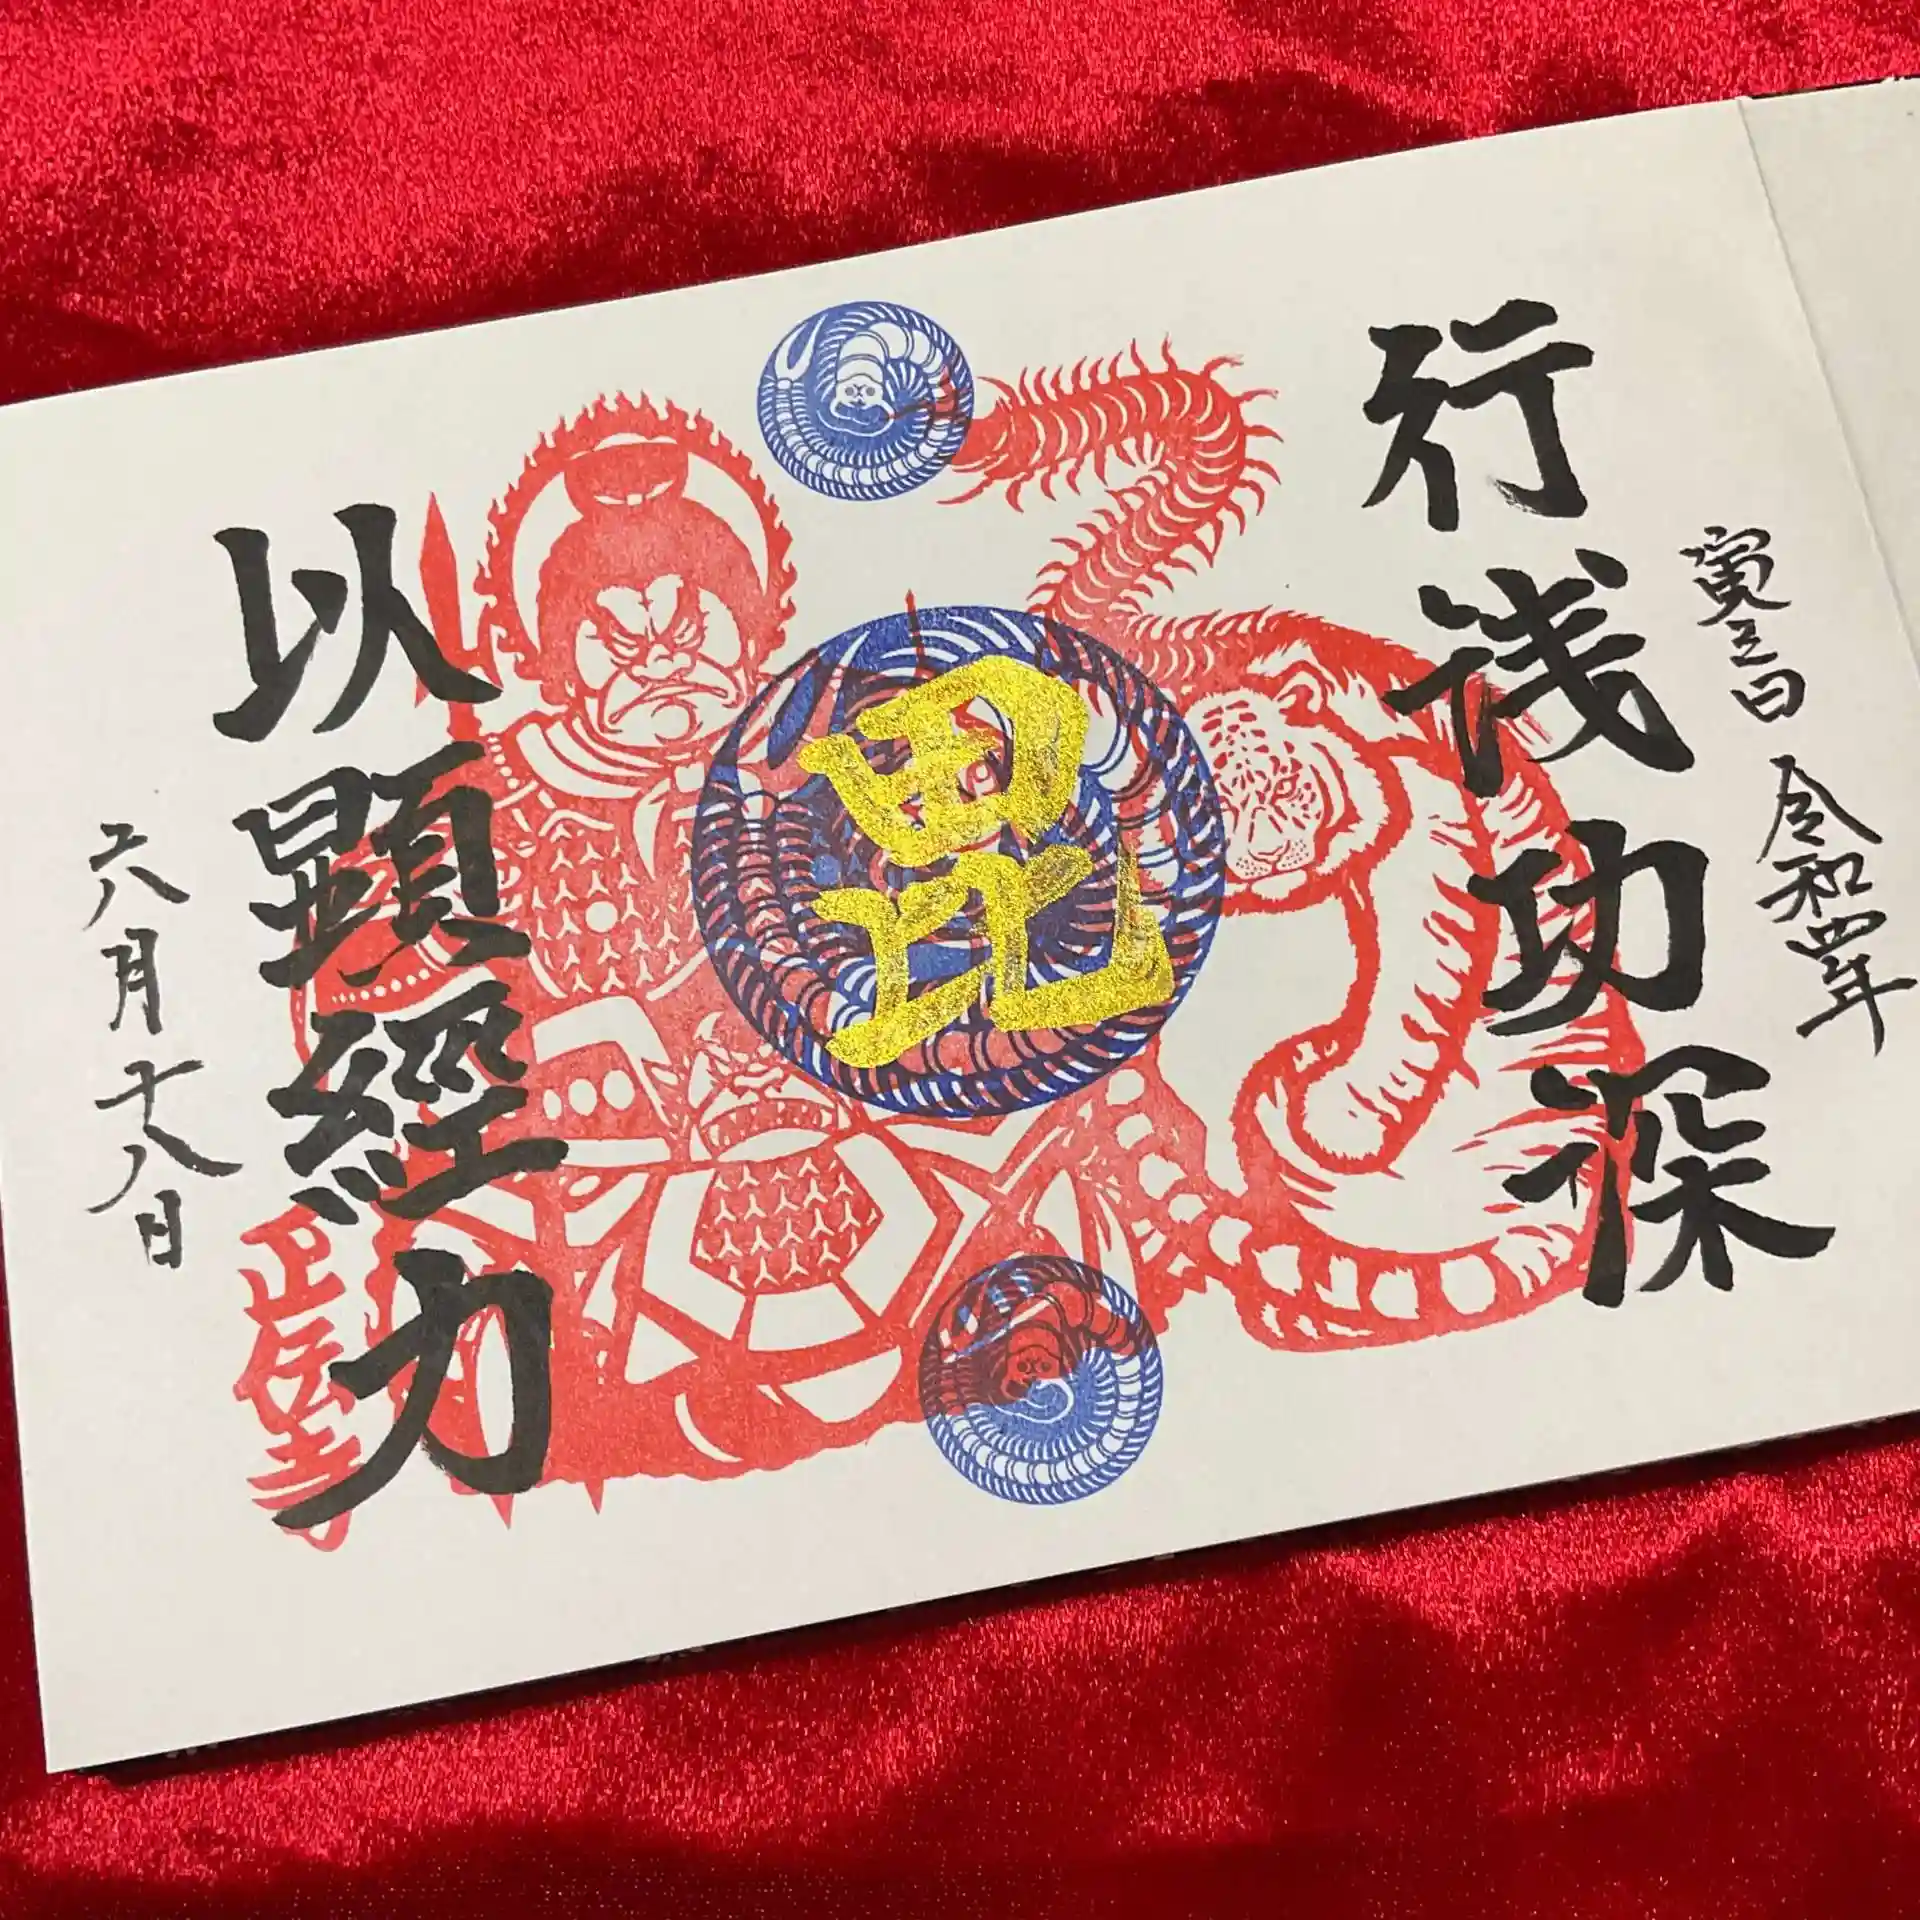 令和四年
寅之日
行浅功深
毘
以顕經力
六月十八日
正伝寺